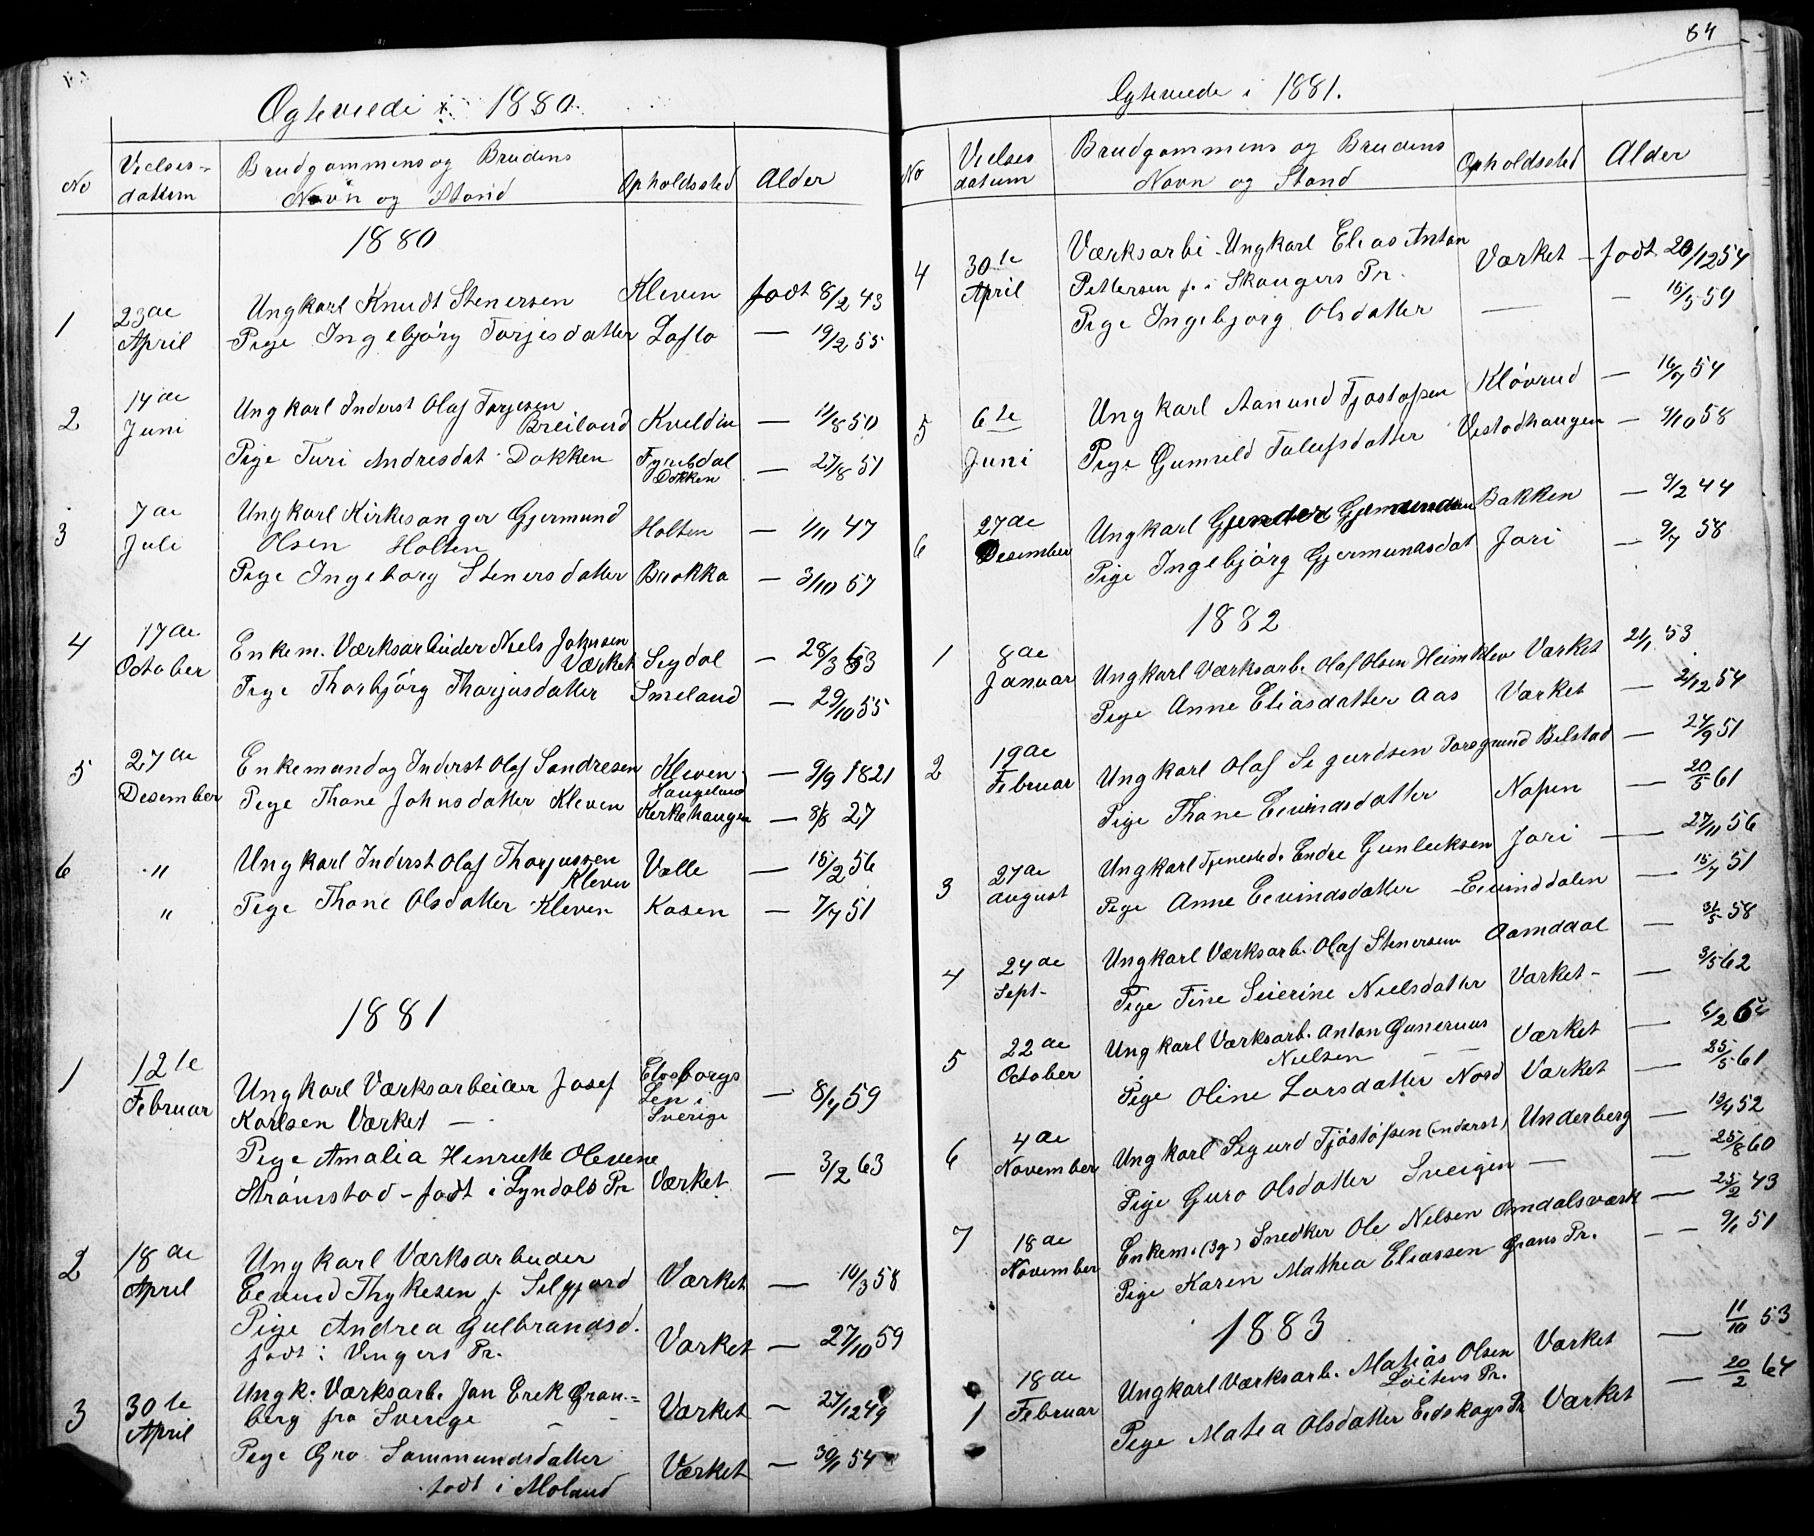 Ogteviede i 1880.
No
Vielses-
datum
Brudgommens og Brudens
Navn og Stand
Opholdssted
Alder
1880
1
23de
April
Ungkarl Knudt Stenersen
Kleven
født 8/2 43
Pige Ingebjørg Torjesdatter
Lofto
— 19/2 55
2
14de
Juni
Ungkarl Inderst Olaf Torjesen
Breiland
Kveldin
— 11/8 50
Pige Turi Andresdat Dokken
Fyrisdal
Dokken
— 27/8 51
3
7de
Juli
Ungkarl Kirkesanger Gjermund
Olsen Holten
Holten
— 1/11 47
Pige Ingeborg Stenersdatter
Brokka
— 3/10 57
4
17de
October
Enkem. Værksarbeider Niels Johnsen
Værket
Sigdal
— 28/3
Pige Thorbjørg Thorjusdatter
Smeland
— 29/10 55
5
27de
Desember
Enkemand og Inderst Olaf Sondresen
Kleven
Haugelund
— 9/9 1821
Pige Thone Johnsdatter Kleven
Kirkehaugen
— 8/8 27
6
"
Ungkarl Inderst Olaf Thorjussen
Kleven
Valle
— 15/2 56
"
Pige Thone Olsdatter Kleven
Kosen
— 7/7 51
1881
1
12te
Februar
Ungkarl Værksarbeider Josef
Karlsen Værket —
Elvsborgs
Len i
Sverige
— 8/7 59
Pige Amalia Henriette Olevene
Strömstad - født i Lyndals Pr
Værket
— 3/2 63
2
18de
April
Ungkarl Værksarbeider
Eevind Thykesen f. Silgjord
Værket
— 10/3 58
Pige Andrea Gulbrandsd.
født i Vingers Pr.
Værket
— 27/10 59
3
30te
April
Ungk. Værksarb. Jan Erek Gran-
berg fra Sverige
Værket
— 27/12 49
Pige Gro Sammundsdatter
født i Moland
Værket
— 30/1 54
84
Ogteviede i 1881.
No
Vielses
datum
Brudgommens og Brudens
Navn og Stand
Opholdssted
Alder
4
30te
April
Værksarbi. Ungkarl Elias Anton
Pettersen f. i Skaugers Pr.
Værket
— født 20/12 54
Pige Ingebjorg Olsdatter
—
— 15/5 59
5
6te
Juni
Ungkarl Aanund Tjostofsen
Kløvrud
— 16/7 54
Pige Gunnild Tolefsdatter
Vestadhaugen
— 9/10 58
6
27de
Desember
Ungkarl Gunder Gjermundsen
Bakken
— 9/2 44
Pige Ingebjörg Gjermundsdat
Jori
— 9/7 58
1882
1
8de
Januar
Ungkarl Værksarb. Olaf Olsen Heimklev
Værket
21/1 53
Pige Anne Eliasdatter Aas
Værket
— 2/12 54
2
19de
Februar
Ungkarl Olaf Sigurdsen Porsgrund
Bilstad
— 27/9 51
Pige Thone Eevindsdatter
Nopen
— 20/5 61
3
27de
august
Ungkarl Tjenested. Endre Gunleiksen
Jori
— 27/11 56
Pige Anne Eevindsdatter
Eevinddalen
— 15/7 51
4
24de
Sept-
Ungkarl Værksarb. Olaf Stenersen
Aamdaal
— 31/5 58
Pige Tine Seierine Nielsdatter
Værket-
— 3/5 62
5
22de
October
Ungkarl Værksarb. Anton Gunerius
Nielsen — —
Værket
— 6/2
Pige Oline Larsdatter Nord
Værket
— 25/5 61
6
4de
November
Ungkarl Sigurd Tjöstofsen (inderst)
Underberg
— 13/4 52
Pige Guro Olsdatter Sveigen
—
— 25/8 60
7
18de
November
Enkem. (3g) Snedker Ole Nilsen
Omdalsværk
— 25/2 43
Pige Karen Mathea Eliassen
Grans Pr.
— 9/1 51
1883
1
18de
Februar
Ungkarl Værksarb. Matias Olsen
Löitens Pr.
Værket
— 11/10 53
Pige Matea Olsdatter Eidskogs Pr
Værket
— 20/2 64